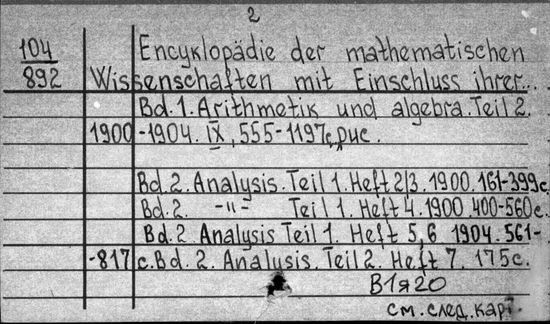 2
104
892
Encyklopädie der mathematischen
Wissenschaften mit Einschluss ihrer...
Bd.1. Arithmetik und algebra. Teil 2.
1900-1904. IX, 555-1197с, рис.
Bd. 2. Analysis. Teil 1. Heft 2/3. 1900. 161-399с.
Bd. 2. -"- Teil 1. Heft 4. 1900. 400-560с.
Bd. 2 Analysis Teil 1. Heft 5,6 1904. 561-
-817 с. Bd. 2. Analysis. Teil 2. Heft 7. 175с.
В1я20
см. след. кар